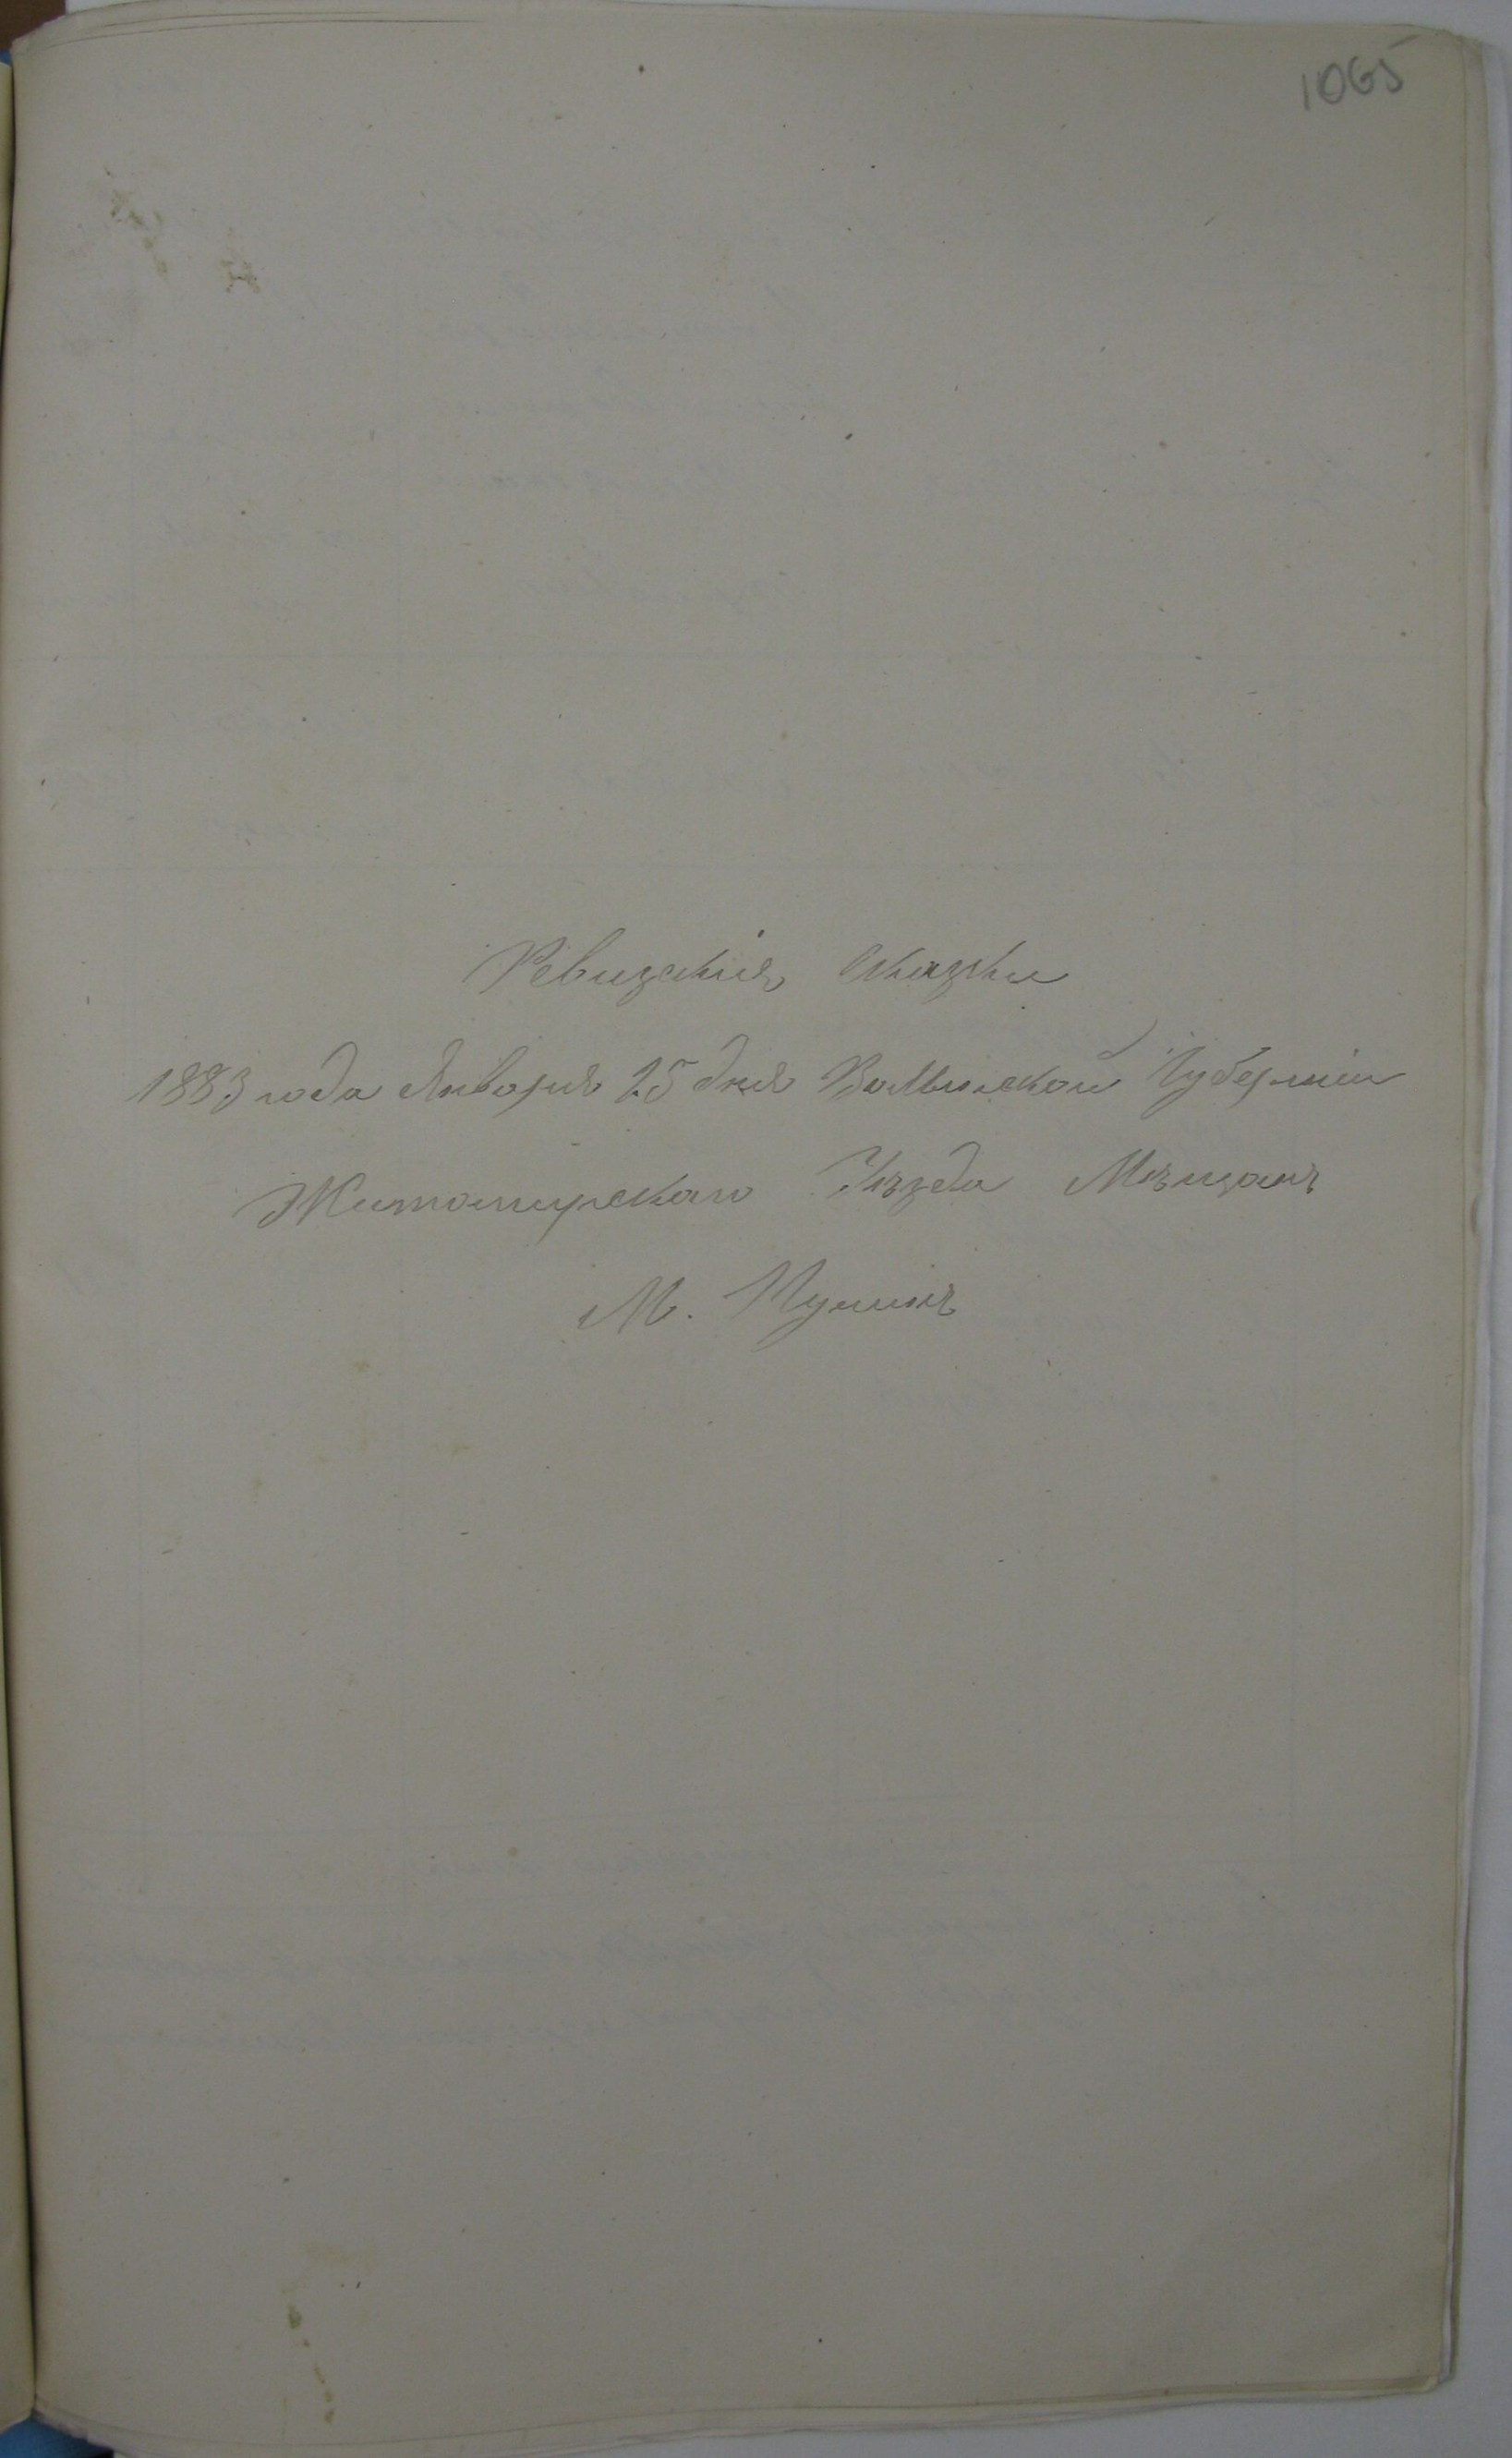 1065
Ревизскія Сказки
1883 года Января 25 дня Волынской Губерніи
Житомирскаго Уѣзда Мѣщанъ
М. Пулинъ